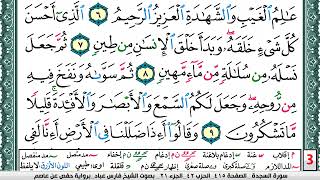 عَٰلِمُ ٱلْغَيْبِ وَٱلشَّهَٰدَةِ ٱلْعَزِيزُ ٱلرَّحِيمُ ٦ ٱلَّذِىٓ أَحْسَنَ
كُلَّ شَىْءٍ خَلَقَهُۥ وَبَدَأَ خَلْقَ ٱلْإِنسَٰنِ مِن طِينٍ ٧ ثُمَّ جَعَلَ
نَسْلَهُۥ مِن سُلَٰلَةٍ مِّن مَّآءٍ مَّهِينٍ ٨ ثُمَّ سَوَّىٰهُ وَنَفَخَ فِيهِ
مِن رُّوحِهِۦ وَجَعَلَ لَكُمُ ٱلسَّمْعَ وَٱلْأَبْصَٰرَ وَٱلْأَفْـِٔدَةَ قَلِيلًا
مَّا تَشْكُرُونَ ٩ وَقَالُوٓا۟ أَءِذَا ضَلَلْنَا فِى ٱلْأَرْضِ أَءِنَّا لَفِى
3
سورة السجدة . الصفحة ٤١٥ الحزب ٤٢ الجزء ٢١ بصوت الشيخ فارس عباد برواية حفص عن عاصم